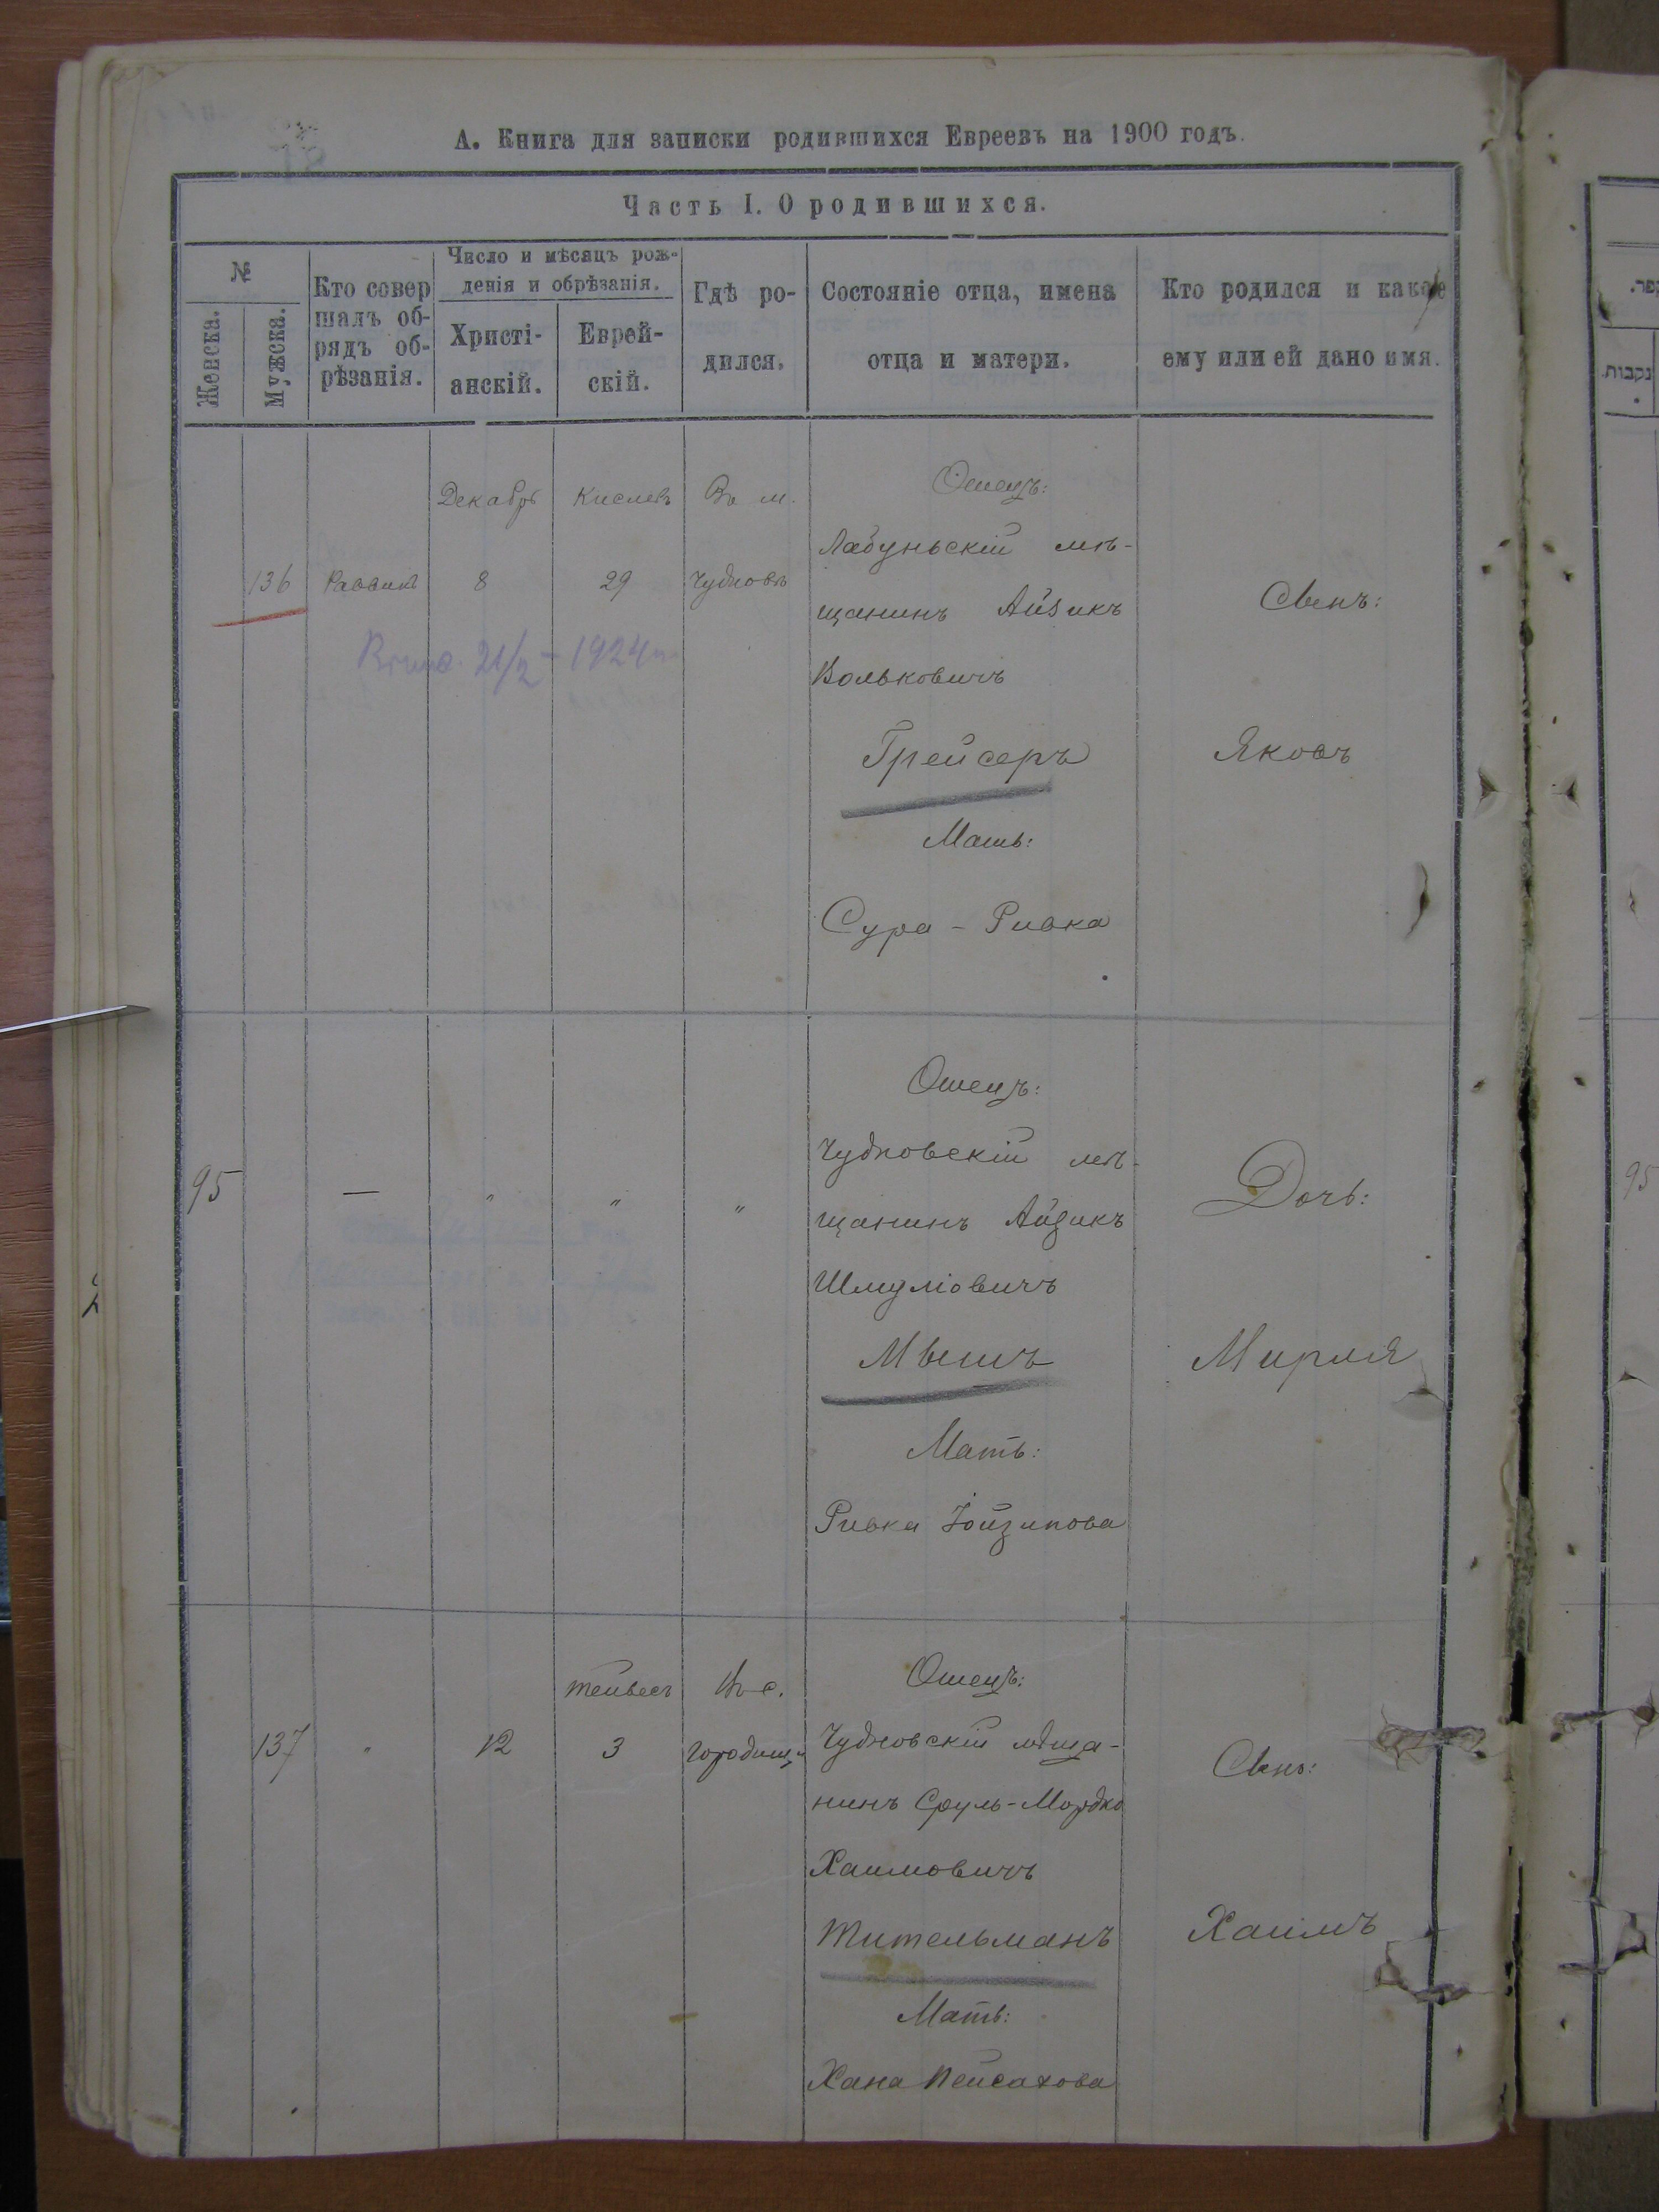 А. Книга для записки родившихся Евреевъ на 1900 годъ.
Часть I. О родившихся.
№
Женска.
Мужска.
Кто совер
шалъ об-
рядъ об-
рѣзанія.
Число и мѣсяцъ рож-
денія и обрѣзанія.
Христі-
анскій.
Еврей-
скій.
Гдѣ ро-
дился.
Состояніе отца, имена
отца и матери.
Кто родился и какое
ему или ей дано имя.
136
Раввинъ
Декабрь
8
Кислевъ
29
Въ м.
Чудновъ
Отецъ:
Лабуньскій мѣ-
щанинъ Айзикъ
Вольковичъ
Грейсеръ
Мать:
Сура - Ривка
Сынъ:
Яковъ
21/2 - 1924
95
—
"
"
"
Отецъ:
Чудновскій мѣ-
щанинъ Айзикъ
Шмуліовичъ
Мышъ
Мать:
Ривка
Дочь:
Мирля
137
"
12
Тейвесъ
3
Въ с.
Городищѣ
Отецъ:
Чудновскій мѣща-
нинъ Сруль-Мордко
Хаимовичъ
Тительманъ
Мать:
Хана Пейсахова
Сынъ:
Хаимъ
95
נקבות.